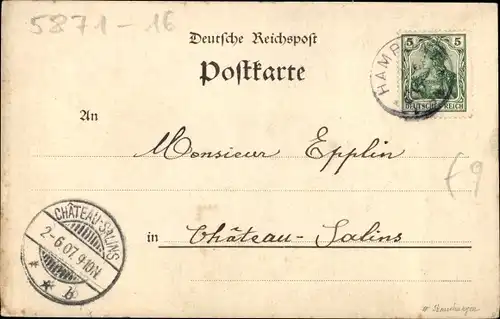 5871-16
Deutsche Reichspost
Postkarte
5 5
HAMP
DEUTSCHES REICH
An
Monsieur Epplin
f9
CHÂTEAU-SALINS
2-6.07.9-10N
* * b
in Château-Salins